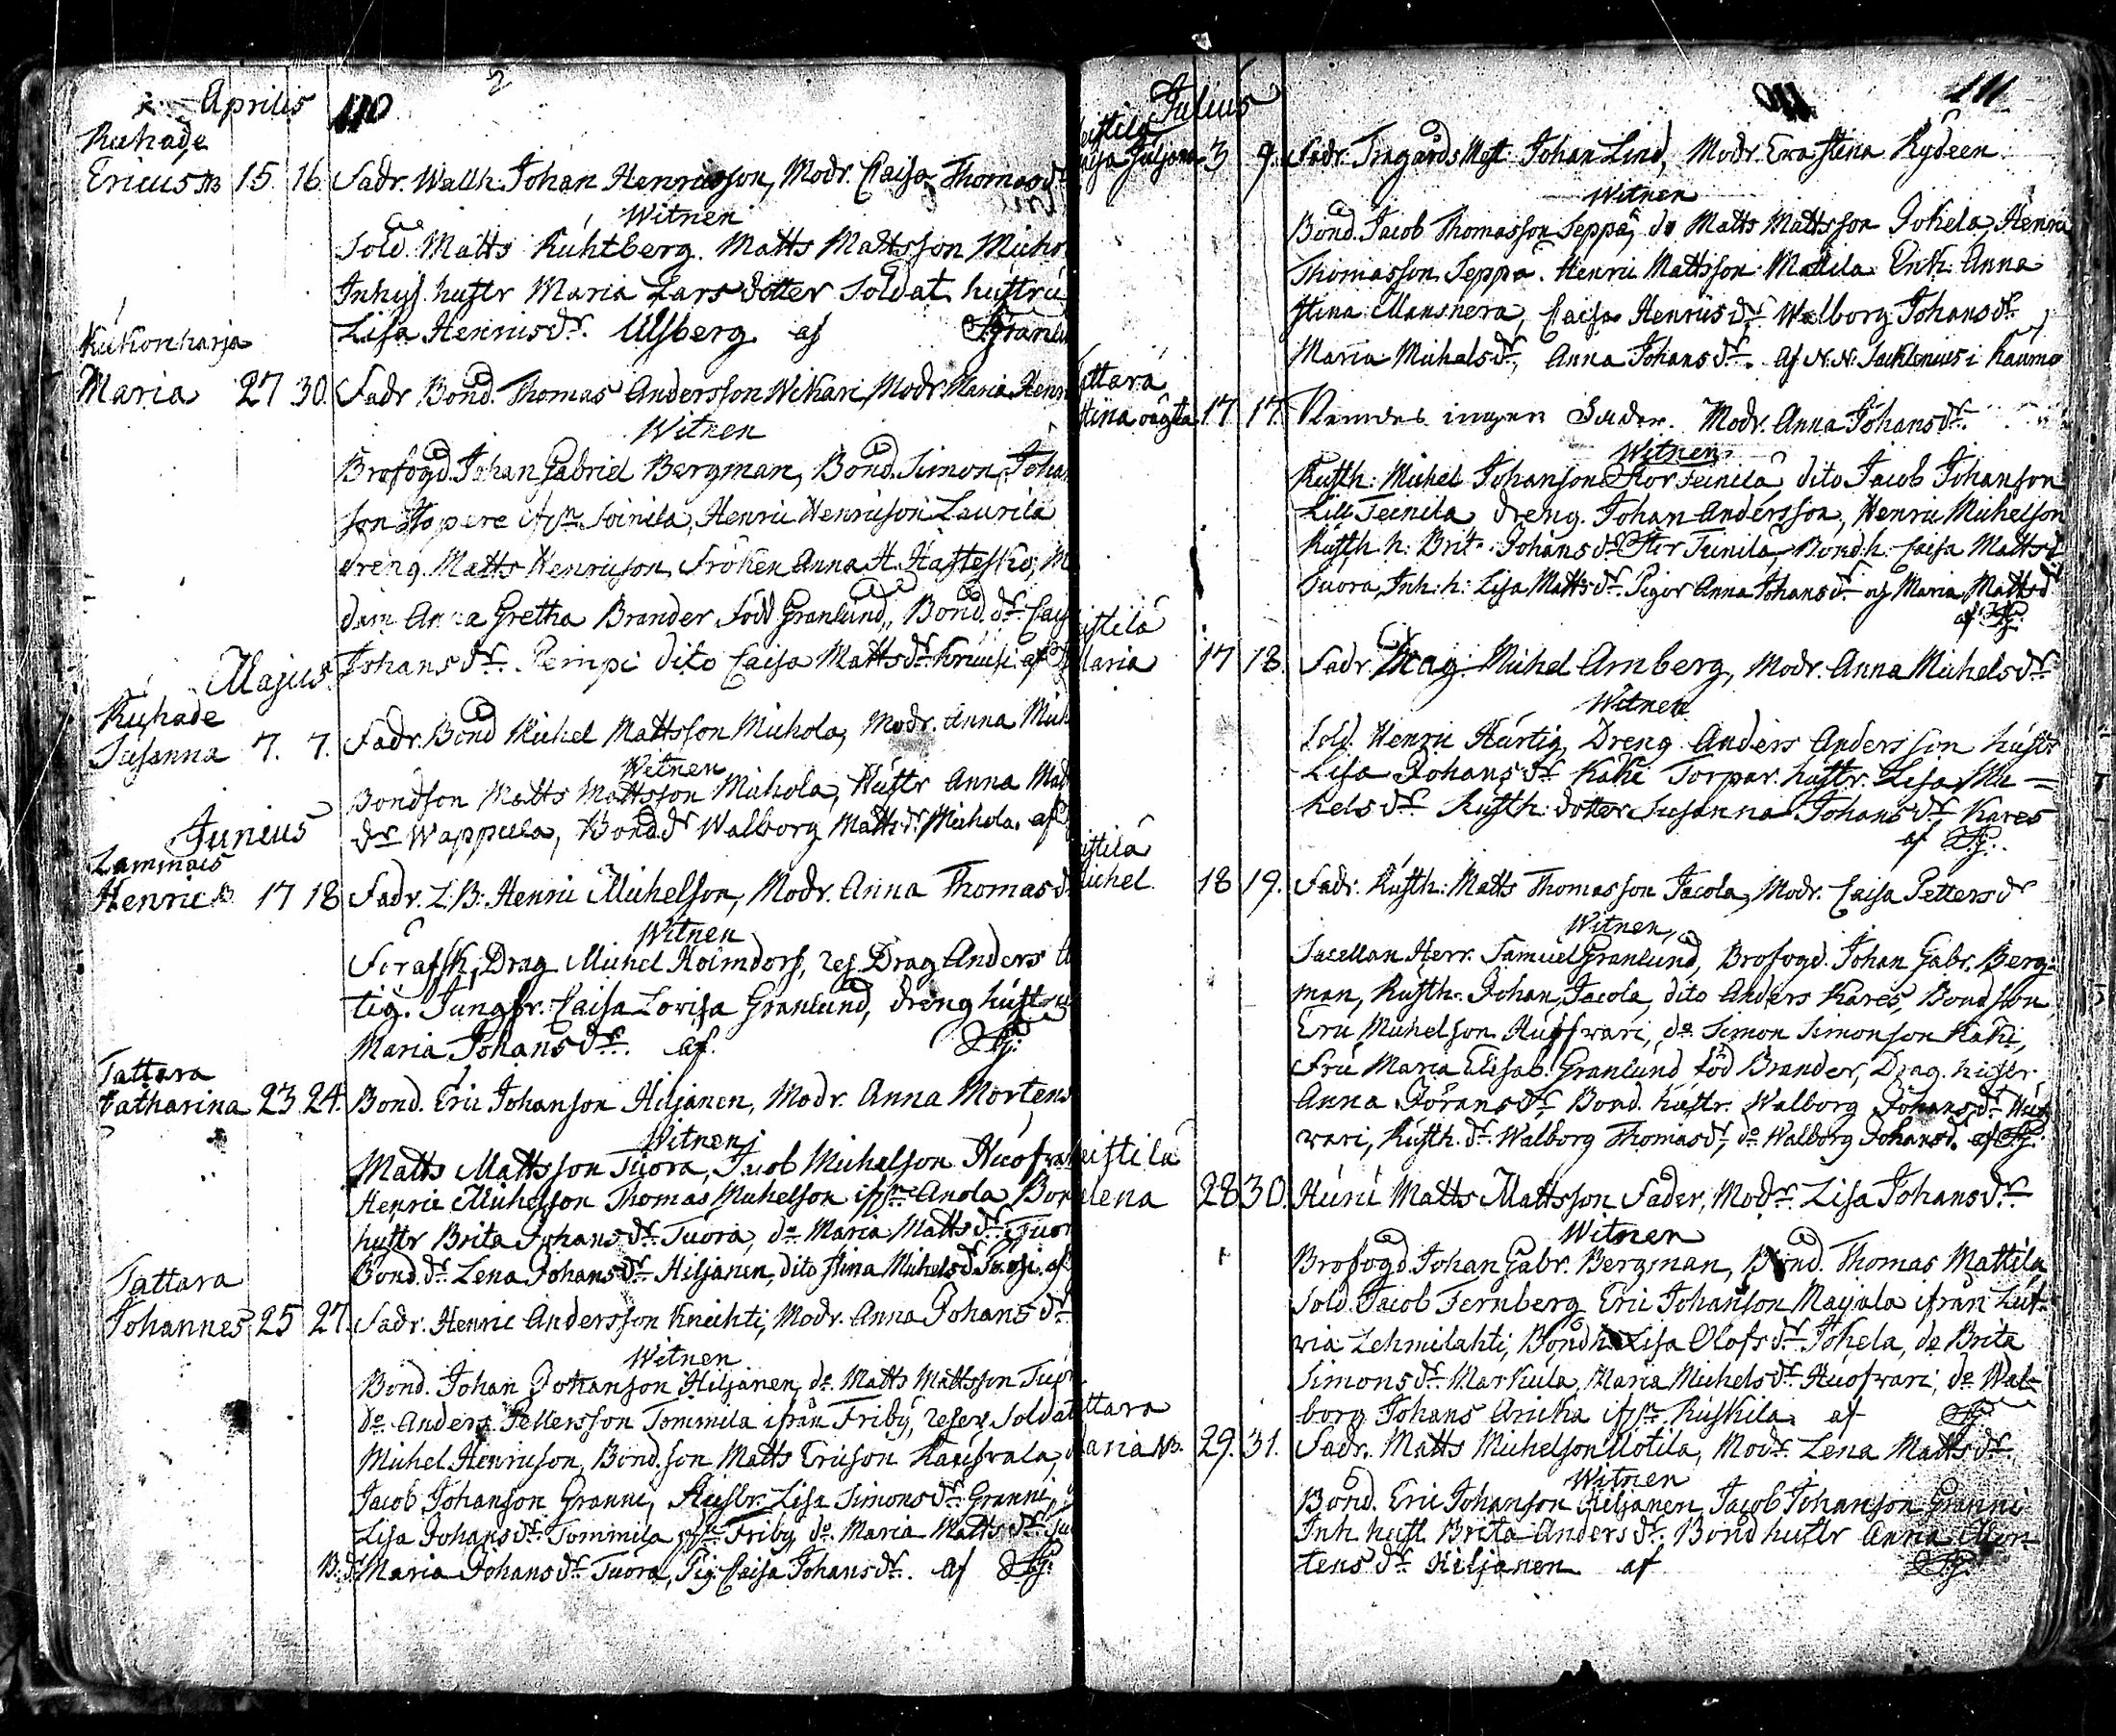 Aprilis 110
Ruhade
Ericus 15. 16. Fadr. Wallh. Johan Henricsson, Modr. Caisa Thomasdr
Witnen
Sold. Matts Kuhtberg. Matts Mattsson Micho
Inhys. hustr Maria Larsdotter Soldat hustru
Lisa Henricsdr. Ulsberg af Granlu
Kukonharja
Maria 27 30. Fadr Bond. Thomas Andersson Wikari, Modr Maria Henr
Witnen
Brofogd. Johan Gabriel Bergman, Bond. Simon Johan
son ifrn Soinila, Henric Henricson Laurila
dreng Matts Henricson, Fröken Anna H. Hästesko, M
dam Anna Gretha Brander född Granlund, Bond. dr. Cais
Johansdr. Pempi dito Caisa Mattsdr. af
Majus
Ruhade
Susanna 7. 7. Fadr. Bond Michel Mattsson Michola, Modr. Anna Mich
Witnen
Bondson Matts Mattsson Michola, Hustr Anna Mad
dr Wappula, Bond. dr Walborg Mattsdr. Michola. af
Junius
Lammais
Henric 17 18 Fadr. L:B: Henric Michelson, Modr. Anna Thomasd
Witnen
Drag Michel Holmdorf, res. Drag Anders
tig. Jungfr. Caisa Lovisa Granlund, dreng hustr
Maria Johansdr. af. SG:
Tattara
Catharina 23 24. Bond. Eric Johanson Hiljanen, Modr. Anna Mortens
Witnen
Matts Mattsson Tuora, Jacob Michelson Huofwa
Henric Michelson Thomas Michelson ifrn Anola Bon
hustr Brita Johansdr. Tuora, do Maria Mattsdr. Tuor
Bond. dr. Lena Johansdr. Hiljanen, dito Stina Michelsdr. af
Tattara
Johannes 25 27. Fadr. Henric Andersson Knichti, Modr. Anna Johansdr
Witnen
Bond. Johan Johanson Hiljanen, do. Matts Mattsson Tuor
do Anders Pettersson Tommila ifrån Friby, reserv Soldat
Michel Henricson, Bond. son Matts Ericson
Jacob Johanson Granni, Lisa Simonsdr. Granni,
Lisa Johansdr. Tommila ifrn Friby, do. Maria Mattsdr.
B. dr Maria Johansdr. Tuora, Pig. Caisa Johansdr. af SG:
Julius 111
aisa Juliana 3 9. Fadr. Tragårds Mest. Johan Lind, Modr. Eva Stina Rydeen
Witnen
Bond. Jacob Thomasson Seppä, do Matts Mattsson Johela, Henric
Thomasson Seppä. Henric Mattsson Mattila Enk: Anna
Stina Mansnera, Caisa Henricsdr. Walborg Johansdr.
Maria Michelsdr, Anna Johansdr. Af N.N. i Raumo
attara
tina oägta 17 17. Nemdes ingen Fader. Modr. Anna Johansdr.
Witnen
Rusth: Michel Johanson Stor Teinila dito Jacob Johanson
Lill Teinila dreng. Johan Andersson, Henric Michelson
Rusth. h: Brit. Johansdr Stor Teinila, Bond. h: Caisa Matts
Tuora, Inh: h: Lisa Mattsdr. Pigor Anna Johansdr. og Maria Mattsdr
af SG:
istila
Maria 17 18. Fadr. Drag. Michel Arnberg, Modr. Anna Michelsdr
Witnen
Sold. Henric Hurtig, Dreng Anders Andersson hustr
Lisa Johansdr Kaki Torpar. hustr. Lisa Mi=
helsdr. Rusth: dotter Susanna Johansdr Kares
af SG:
istila
Michel. 18 19. Fadr. Rusth: Matts Thomasson Jacola, Modr. Caisa Pettersdr
Witnen,
Sacellan Herr. Samuel Granlund, Brofogd. Johan Gabr. Berg=
man, Rusth. Johan Jacola, dito Anders Kares, Bondson
Eric Michelson Huffwari, do Simon Simonson Kaki,
Fru Maria Elisab. Granlund född Brander, Drag. hustr.
Anna Jöransdr. Bond. hustr. Walborg Johansdr.
wari, Rusth. dr. Walborg Thomasdr, do Walborg Johansd. af SG.
eistila
lena 28 30. Matts Mattsson Fader, Modr. Lisa Johansdr.
Witnen
Brofogd. Johan Gabr. Bergman, Bond. Thomas Mattila
Sold. Jacob Fernberg, Eric Johanson Maijala ifrån
Lehmilahti, Bond h. Lisa Olofsdr. Johela, do Brita
Simonsdr. Markula, Maria Michelsdr. Huofwari, do Wal=
borg Johans ifrn af SG:
ttara
aria NB. 29. 31. Fadr. Matts Michelson Uotila, Modr. Lena Mattsdr.
Witnen
Bond. Eric Johanson Hiljanen Jacob Johanson Granni
Inh. hust. Brita Andersdr. Bond hustr Anna Mor=
tensdr Hiljanen af SG: